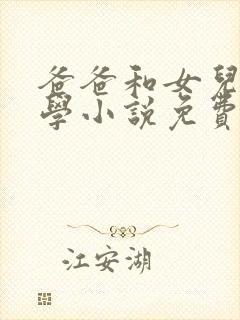 爸爸和女兒
學小說免費
江安湖